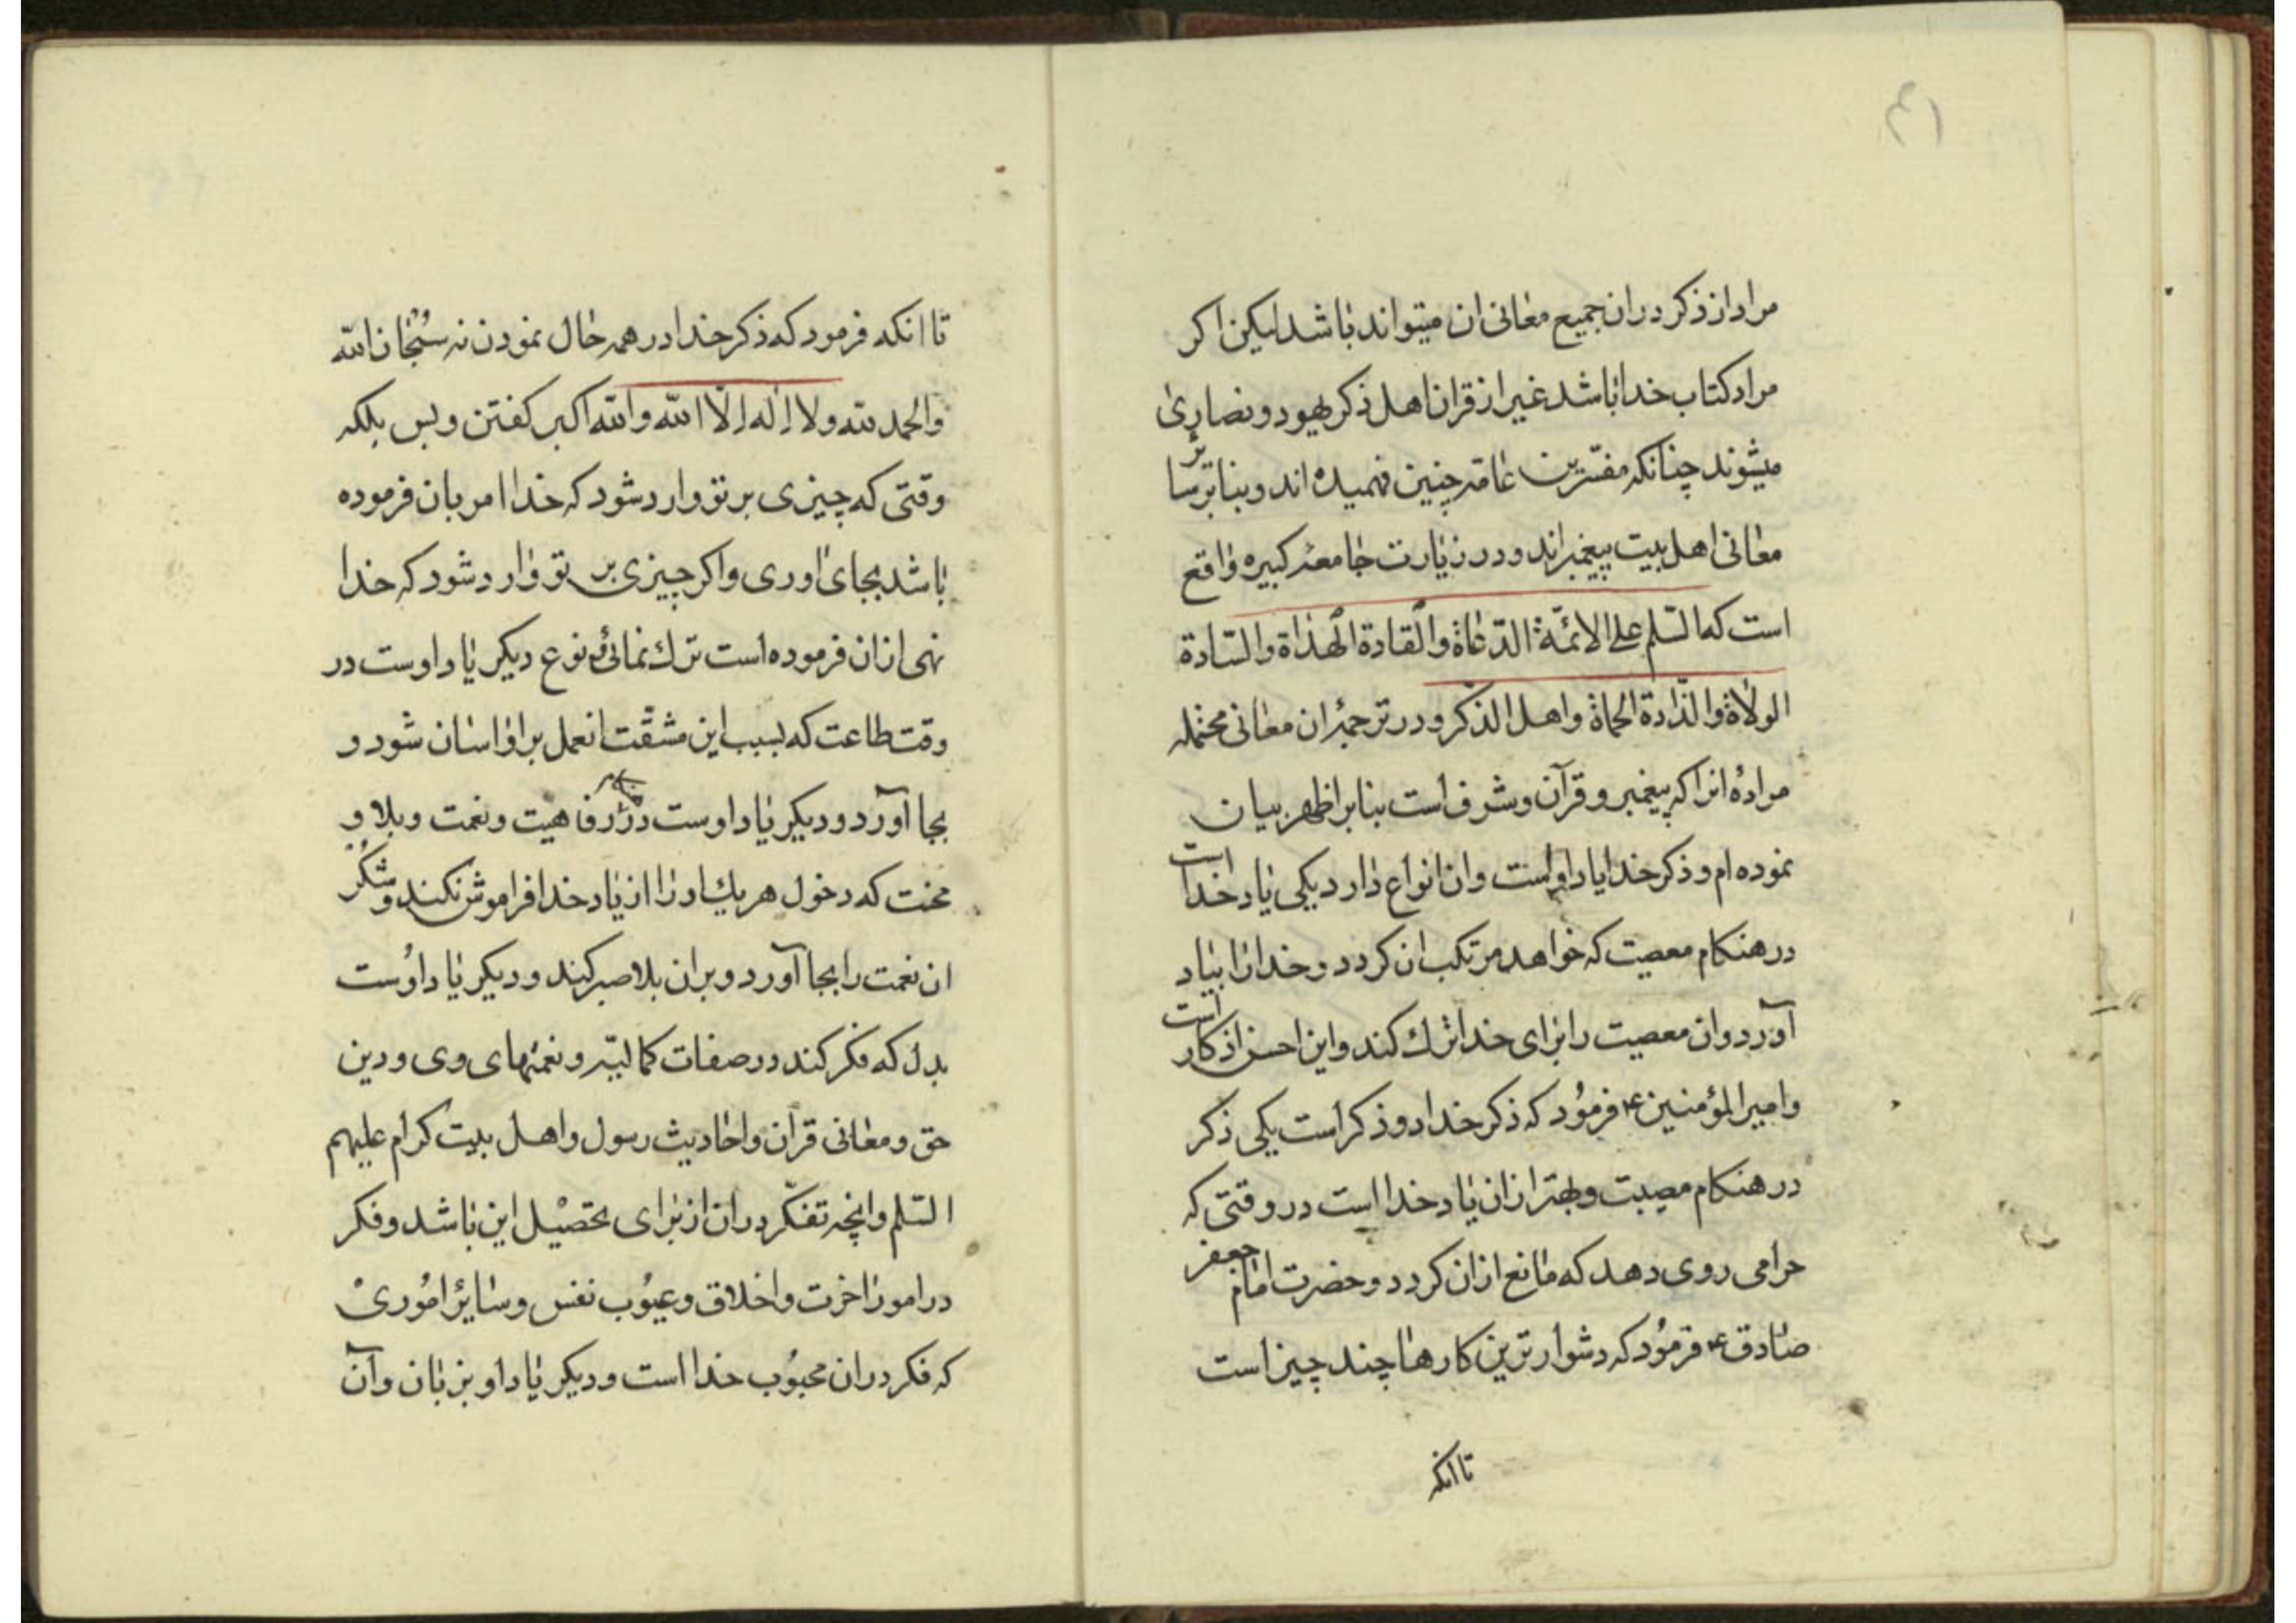 ۴۱
مراد از ذکر در ان جمیع معانی ان میتواند باشد لیکن اکر
مراد کتاب خدا باشد غیر از قران اهل ذکر یهود و نصاری
میشوند چنانکه مفسّرین عامّه چنین فهمیده اند و بنابر سا یر
معانی اهل بیت پیغمبراند و در زیارت جامعهٔ کبیره واقع
است که السّلم علی الائمّة الدّعاة والقادة الهداة والسّادة
الولاة والذّادة الحماة واهل الذّکر و در ترجمهٔ ان معانی محتمله
مراده انرا که پیغمبر و قرآن و شرف است بنابر اظهر بیان
نموده ام و ذکر خدا یاد اوست وان انواع دارد یکی یاد خدا است
در هنکام معصیت که خواهد مرتکب ان کردد و خدا را بیاد
آورد وان معصیت را برای خدا ترك کند و این احسن اذکار است
و امیرالمؤمنین ع فرمود که ذکر خدا دو ذکر است یکی ذکر
در هنکام مصیبت و بهتر از ان یاد خدا است در وقتی که
حرامی روی دهد که مانع از ان کردد و حضرت امام جعفر
صادق ع فرمُود که دشوار ترین کارها چند چیز است
تا انکه
تا انکه فرمود که ذکر خدا در همه حال نمودن نه سُبْحان الله
والحمد لله ولا اله الّا الله والله اکبر کفتن و بس بلکه
وقتی که چیزی بر تو وارد شود که خدا امر بان فرموده
باشد بجای اوری و اکر چیزی بر تو وارد شود که خدا
نهی از ان فرموده است ترك نمائی و نوع دیکر یاد اوست در
وقت طاعت که بسبب این مشقّت انعمل بر او اسان شود و
بجا آورد و دیکر یاد اوست در رفاهیت و نعمت و بلا و
محنت که دخول هر یك او را از یاد خدا فراموش نکند و شکر
ان نعمت را بجا آورد و بر ان بلا صبر کند و دیکر یاد اوُست
بدل که فکر کند در صفات کمالیّه و نعمتهای وی و دین
حق و معانی قران و احادیث رسول و اهل بیت کرام علیهم
السّلم و انچه تفکّر در ان از برای تحصیْل این باشد و فکر
در امور اخرت و اخلاق و عیوُب نفس و سایر امُوریْ
که فکر در ان محبُوب خدا است و دیکر یاد او بزبان و آن